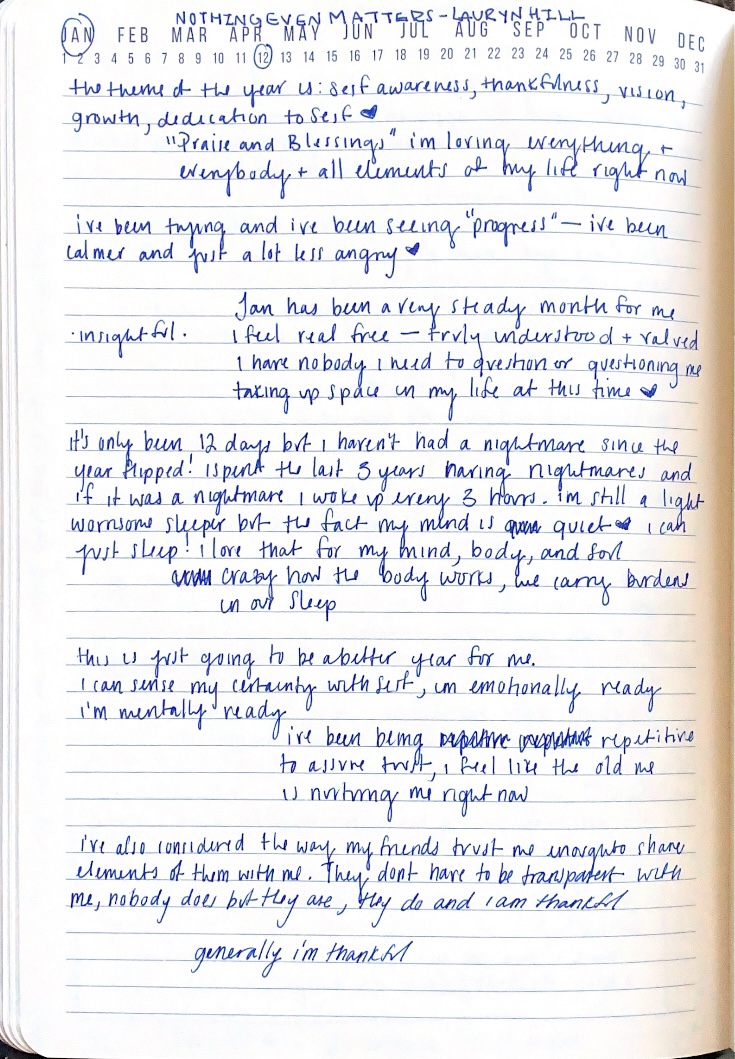 NOTHING EVEN MATTERS - LAURYN HILL
JAN FEB MAR APR MAY JUN JUL AUG SEP OCT NOV DEC
1 2 3 4 5 6 7 8 9 10 11 12 13 14 15 16 17 18 19 20 21 22 23 24 25 26 27 28 29 30 31
the theme of the year is: self awareness, thankfulness, vision,
growth, dedication to self ♥
"Praise and Blessings" im loving everything +
everybody + all elements of my life right now
ive been trying and ive been seeing "progress" — ive been
calmer and just a lot less angry ♥
Jan has been a very steady month for me
·insightful. I feel real free — truly understood + valued
I have nobody I need to question or questioning me
taking up space in my life at this time ♥
it's only been 12 days but I haven't had a nightmare since the
year flipped! I spent the last 3 years having nightmares and
if it was a nightmare I woke up every 3 hours. im still a light
worrisome sleeper but the fact my mind is quiet ♥ I can
just sleep! I love that for my mind, body, and soul
crazy how the body works, we carry burdens
in our sleep
this is just going to be a better year for me.
I can sense my certainty with self, im emotionally ready
i'm mentally ready
ive been being repetitive
to assure trust, I feel like the old me
is nurturing me right now
i've also considered the way my friends trust me enough to share
elements of them with me. They dont have to be transparent with
me, nobody does but they are, they do and I am thankful
generally i'm thankful